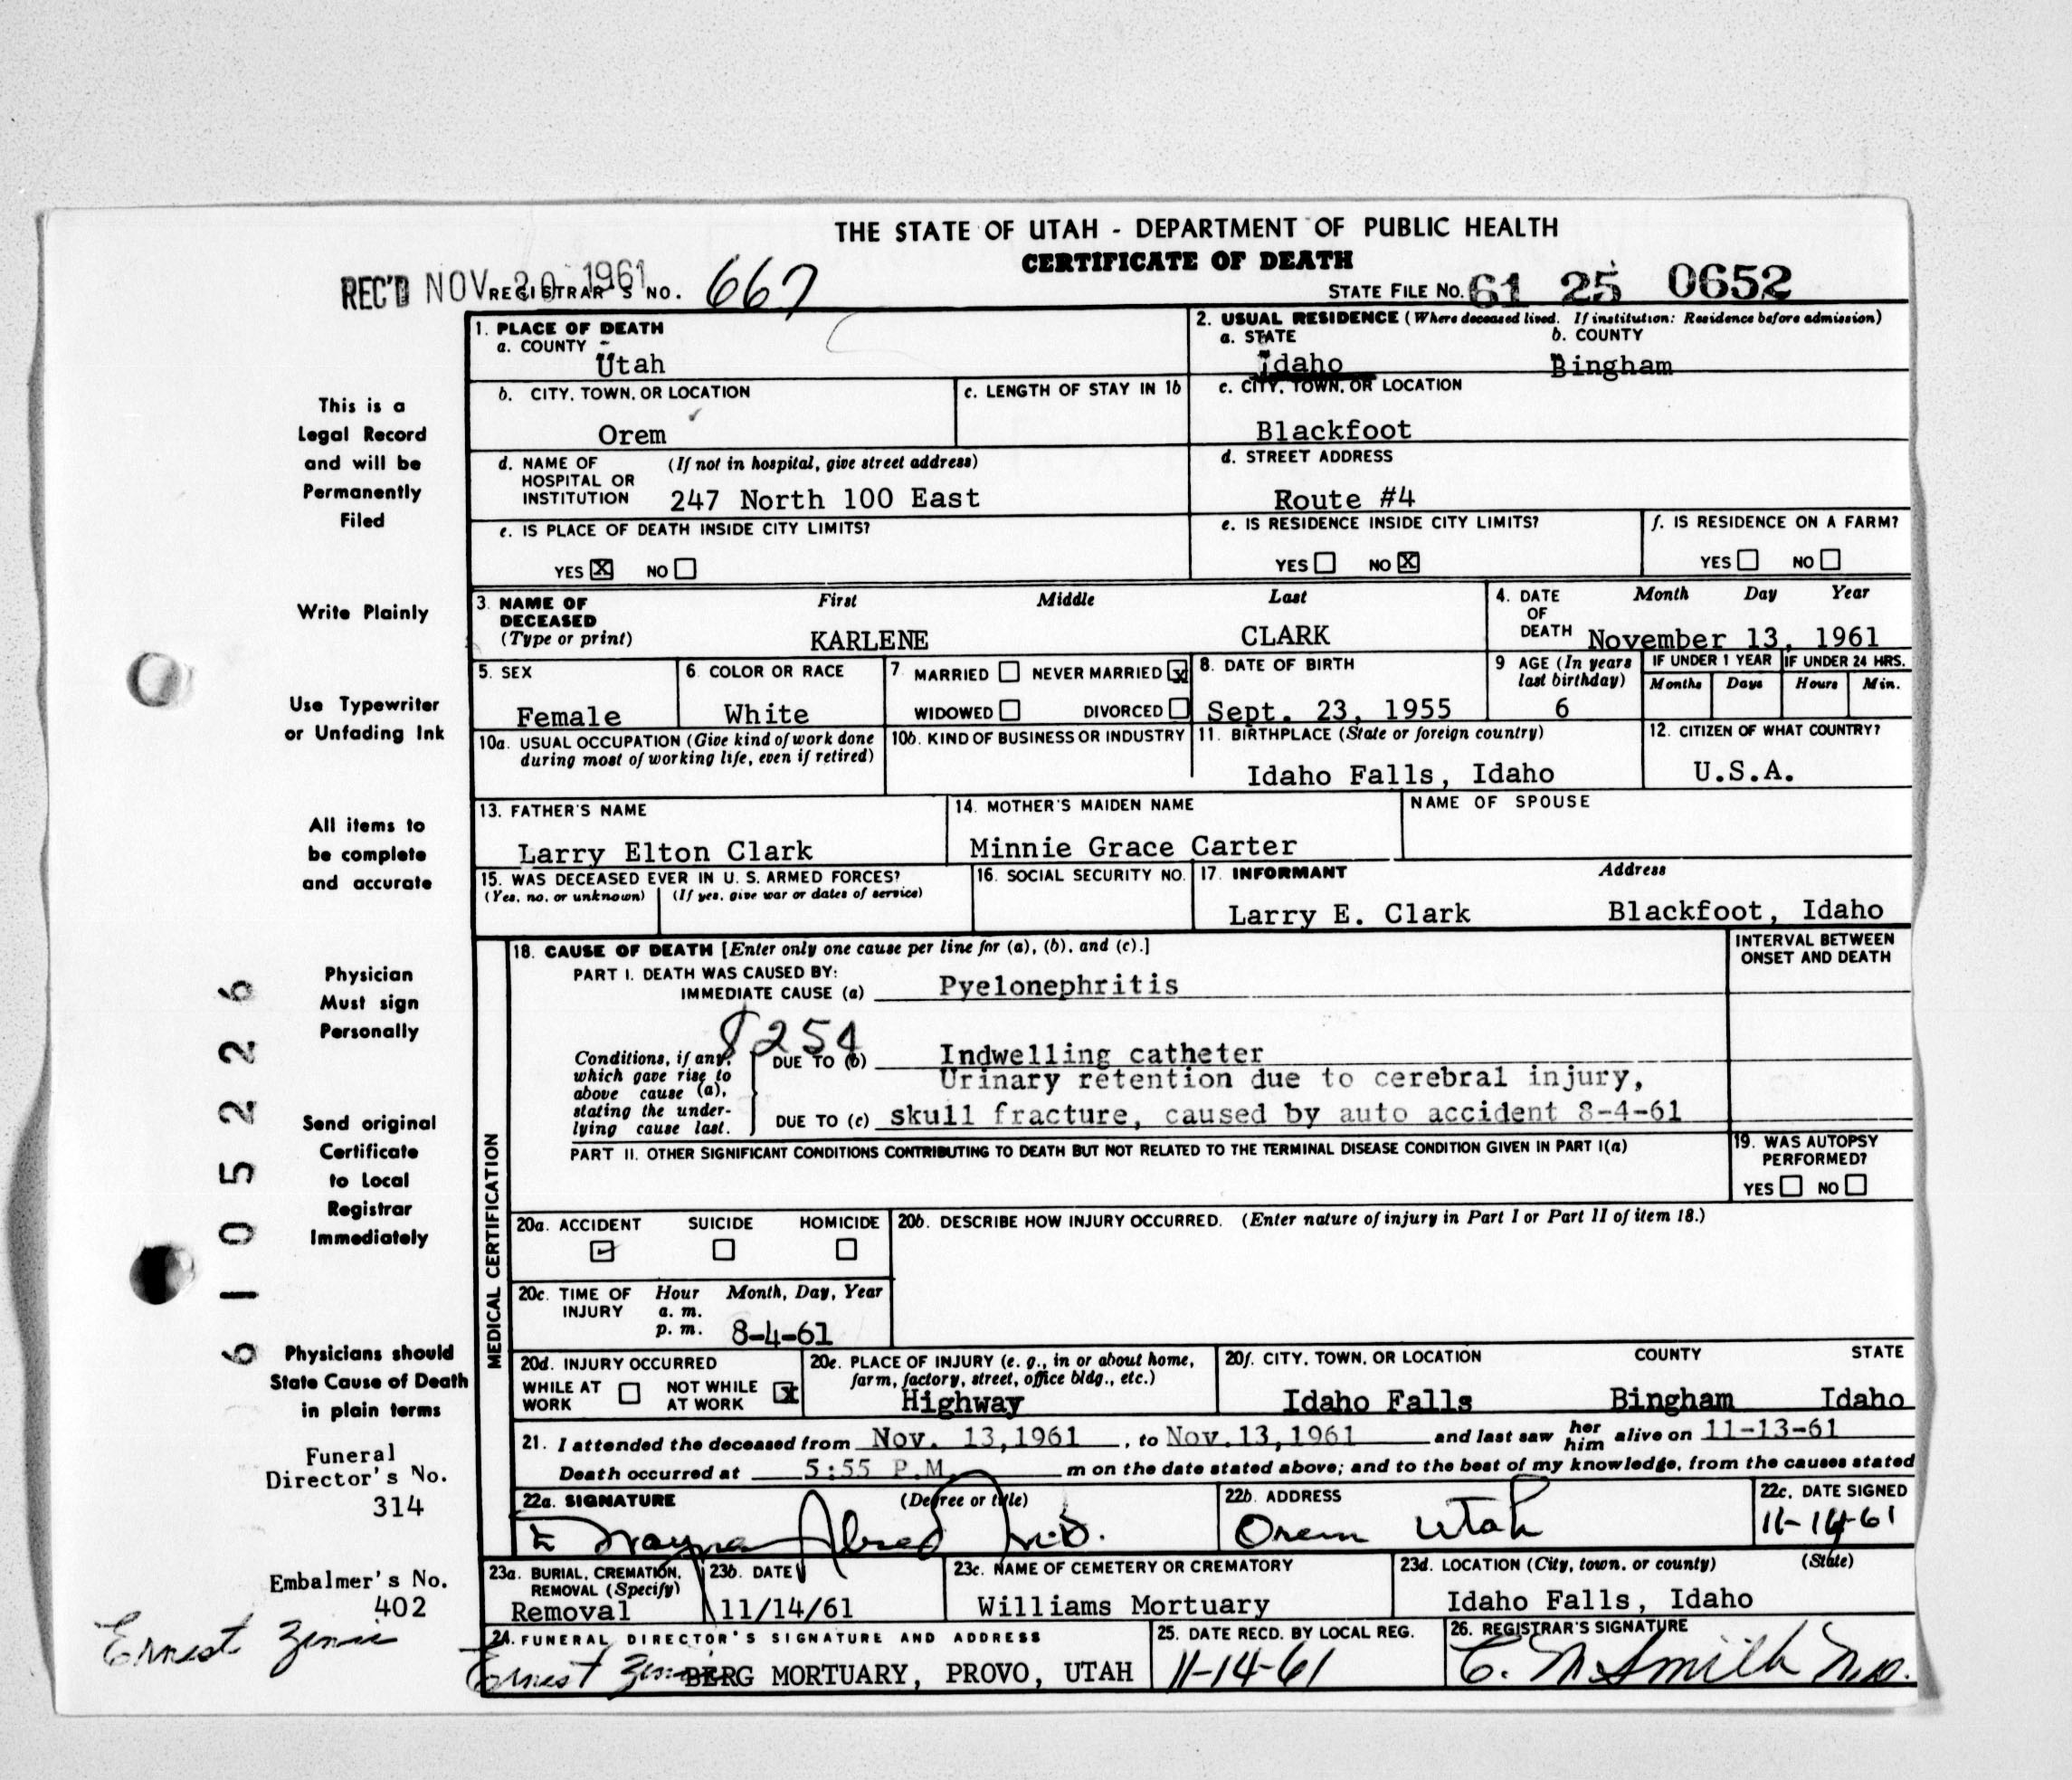 THE STATE OF UTAH - DEPARTMENT OF PUBLIC HEALTH
CERTIFICATE OF DEATH
REC'D NOV 20 1961 REGISTRAR'S NO. 667
STATE FILE No. 61 25 0652
This is a
Legal Record
and will be
Permanently
Filed
Write Plainly
Use Typewriter
or Unfading Ink
All items to
be complete
and accurate
Physician
Must sign
Personally
Send original
Certificate
to Local
Registrar
Immediately
Physicians should
State Cause of Death
in plain terms
Funeral
Director's No.
314
Embalmer's No.
402
Ernest
61 05226
1. PLACE OF DEATH
a. COUNTY
Utah
2. USUAL RESIDENCE (Where deceased lived. If institution: Residence before admission)
a. STATE b. COUNTY
Idaho Bingham
b. CITY, TOWN, OR LOCATION
Orem
c. LENGTH OF STAY IN 1b
c. CITY, TOWN, OR LOCATION
Blackfoot
d. NAME OF (If not in hospital, give street address)
HOSPITAL OR
INSTITUTION 247 North 100 East
d. STREET ADDRESS
Route #4
e. IS PLACE OF DEATH INSIDE CITY LIMITS?
YES X NO
e. IS RESIDENCE INSIDE CITY LIMITS?
YES NO X
f. IS RESIDENCE ON A FARM?
YES NO
3. NAME OF First Middle Last
DECEASED
(Type or print) KARLENE CLARK
4. DATE Month Day Year
OF
DEATH November 13, 1961
5. SEX
Female
6. COLOR OR RACE
White
7. MARRIED NEVER MARRIED X
WIDOWED DIVORCED
8. DATE OF BIRTH
Sept. 23, 1955
9 AGE (In years
last birthday)
6
IF UNDER 1 YEAR IF UNDER 24 HRS.
Months Days Hours Min.
10a. USUAL OCCUPATION (Give kind of work done
during most of working life, even if retired)
10b. KIND OF BUSINESS OR INDUSTRY
11. BIRTHPLACE (State or foreign country)
Idaho Falls, Idaho
12. CITIZEN OF WHAT COUNTRY?
U.S.A.
13. FATHER'S NAME
Larry Elton Clark
14. MOTHER'S MAIDEN NAME
Minnie Grace Carter
NAME OF SPOUSE
15. WAS DECEASED EVER IN U. S. ARMED FORCES?
(Yes, no, or unknown) (If yes, give war or dates of service)
16. SOCIAL SECURITY NO.
17. INFORMANT Address
Larry E. Clark Blackfoot, Idaho
MEDICAL CERTIFICATION
18. CAUSE OF DEATH [Enter only one cause per line for (a), (b), and (c).]
INTERVAL BETWEEN
ONSET AND DEATH
PART I. DEATH WAS CAUSED BY:
IMMEDIATE CAUSE (a) Pyelonephritis
Conditions, if any,
which gave rise to
above cause (a),
stating the under-
lying cause last.
DUE TO (b) Indwelling catheter
Urinary retention due to cerebral injury,
DUE TO (c) skull fracture, caused by auto accident 8-4-61
PART II. OTHER SIGNIFICANT CONDITIONS CONTRIBUTING TO DEATH BUT NOT RELATED TO THE TERMINAL DISEASE CONDITION GIVEN IN PART I(a)
19. WAS AUTOPSY
PERFORMED?
YES NO
20a. ACCIDENT SUICIDE HOMICIDE
20b. DESCRIBE HOW INJURY OCCURRED. (Enter nature of injury in Part I or Part II of item 18.)
20c. TIME OF Hour Month, Day, Year
INJURY a. m.
p. m. 8-4-61
20d. INJURY OCCURRED
WHILE AT NOT WHILE X
WORK AT WORK
20e. PLACE OF INJURY (e. g., in or about home,
farm, factory, street, office bldg., etc.)
Highway
20f. CITY, TOWN, OR LOCATION COUNTY STATE
Idaho Falls Bingham Idaho
21. I attended the deceased from Nov. 13,1961, to Nov.13,1961 and last saw her him alive on 11-13-61
Death occurred at 5:55 P.M. m on the date stated above; and to the best of my knowledge, from the causes stated
22a. SIGNATURE (Degree or title)
E Wayne M.D.
22b. ADDRESS
Orem Utah
22c. DATE SIGNED
11-14-61
23a. BURIAL, CREMATION,
REMOVAL (Specify)
Removal
23b. DATE
11/14/61
23c. NAME OF CEMETERY OR CREMATORY
Williams Mortuary
23d. LOCATION (City, town, or county) (State)
Idaho Falls, Idaho
24. FUNERAL DIRECTOR'S SIGNATURE AND ADDRESS
Ernest BERG MORTUARY, PROVO, UTAH
25. DATE RECD. BY LOCAL REG.
11-14-61
26. REGISTRAR'S SIGNATURE
C. M Smith M.D.